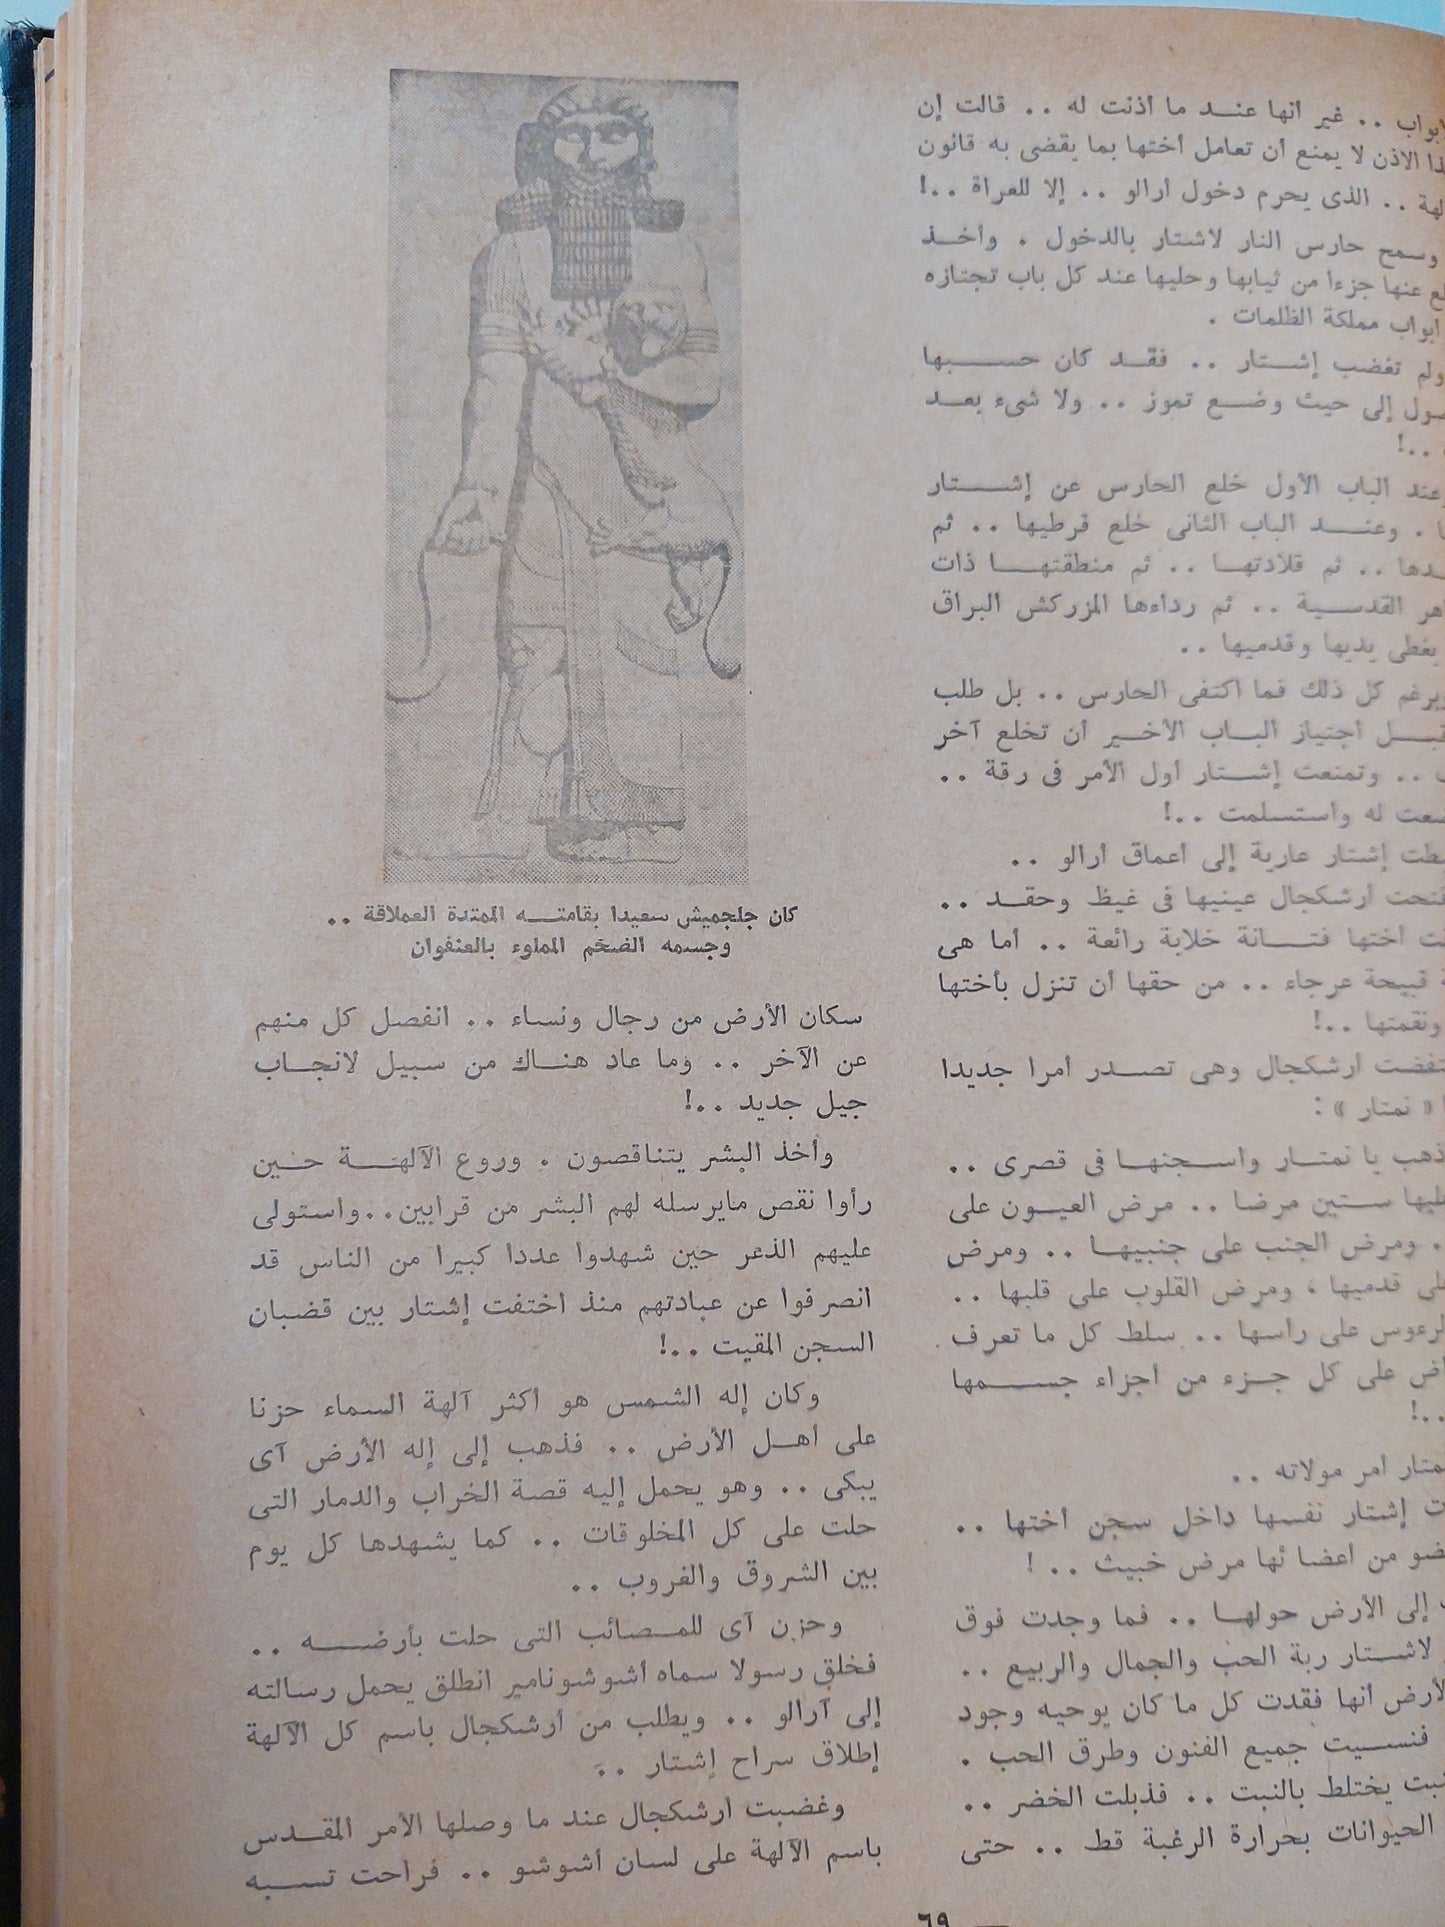 أبواب . . غير أنها عند ما أذنت له . . قالت إن
الاذن لا يمنع أن تعامل أختها بما يقضى به قانون
. . الذى يحرم دخول أرالو . . إلا للعراة . . !
وسمح حارس النار لاشتار بالدخول . وأخذ
عنها جزءا من ثيابها وحليها عند كل باب تجتازه
أبواب مملكة الظلمات .
ولم تغضب إشتار . . فقد كان حسبها
إلى حيث وضع تموز . . ولا شىء بعد
. . !
عند الباب الأول خلع الحارس عن إشتار
. وعند الباب الثانى خلع قرطيها . . ثم
. . ثم قلادتها . . ثم منطقتها ذات
القدسية . . ثم رداءها المزركش البراق
يغطى يديها وقدميها . .
كل ذلك فما اكتفى الحارس . . بل طلب
اجتياز الباب الأخير أن تخلع آخر
. . وتمنعت إشتار أول الأمر فى رقة . .
له واستسلمت . . !
إشتار عارية إلى أعماق أرالو . .
أرشكجال عينيها فى غيظ وحقد . .
أختها فتانة خلابة رائعة . . أما هى
قبيحة عرجاء . . من حقها أن تنزل بأختها
ونقمتها . . !
أرشكجال وهى تصدر أمرا جديدا
« نمتار » :
يا نمتار واسجنها فى قصرى . .
ستين مرضا . . مرض العيون على
. ومرض الجنب على جنبيها . . ومرض
قدميها ، ومرض القلوب على قلبها . .
على رأسها . . سلط كل ما تعرف
على كل جزء من أجزاء جسمها
. . !
أمر مولاته . .
إشتار نفسها داخل سجن أختها . .
من أعضائها مرض خبيث . . !
إلى الأرض حولها . . فما وجدت فوق
لاشتار ربة الحب والجمال والربيع . .
أنها فقدت كل ما كان يوحيه وجود
فنسيت جميع الفنون وطرق الحب .
يختلط بالنبت . . فذبلت الخضر . .
الحيوانات بحرارة الرغبة قط . . حتى
كان جلجميش سعيدا بقامته الممتدة العملاقة . .
وجسمه الضخم المملوء بالعنفوان
سكان الأرض من رجال ونساء . . انفصل كل منهم
عن الآخر . . وما عاد هناك من سبيل لانجاب
جيل جديد . . !
وأخذ البشر يتناقصون . وروع الآلهة حين
رأوا نقص مايرسله لهم البشر من قرابين . . واستولى
عليهم الذعر حين شهدوا عددا كبيرا من الناس قد
انصرفوا عن عبادتهم منذ اختفت إشتار بين قضبان
السجن المقيت . . !
وكان إله الشمس هو أكثر آلهة السماء حزنا
على أهل الأرض . . فذهب إلى إله الأرض آى
يبكى . . وهو يحمل إليه قصة الخراب والدمار التى
حلت على كل المخلوقات . . كما يشهدها كل يوم
بين الشروق والغروب . .
وحزن آى للمصائب التى حلت بأرضه . .
فخلق رسولا سماه أشوشونامير انطلق يحمل رسالته
إلى آرالو . . ويطلب من أرشكجال باسم كل الآلهة
إطلاق سراح إشتار . .
وغضبت أرشكجال عند ما وصلها الأمر المقدس
باسم الآلهة على لسان أشوشو . . فراحت تسبه
٦٩